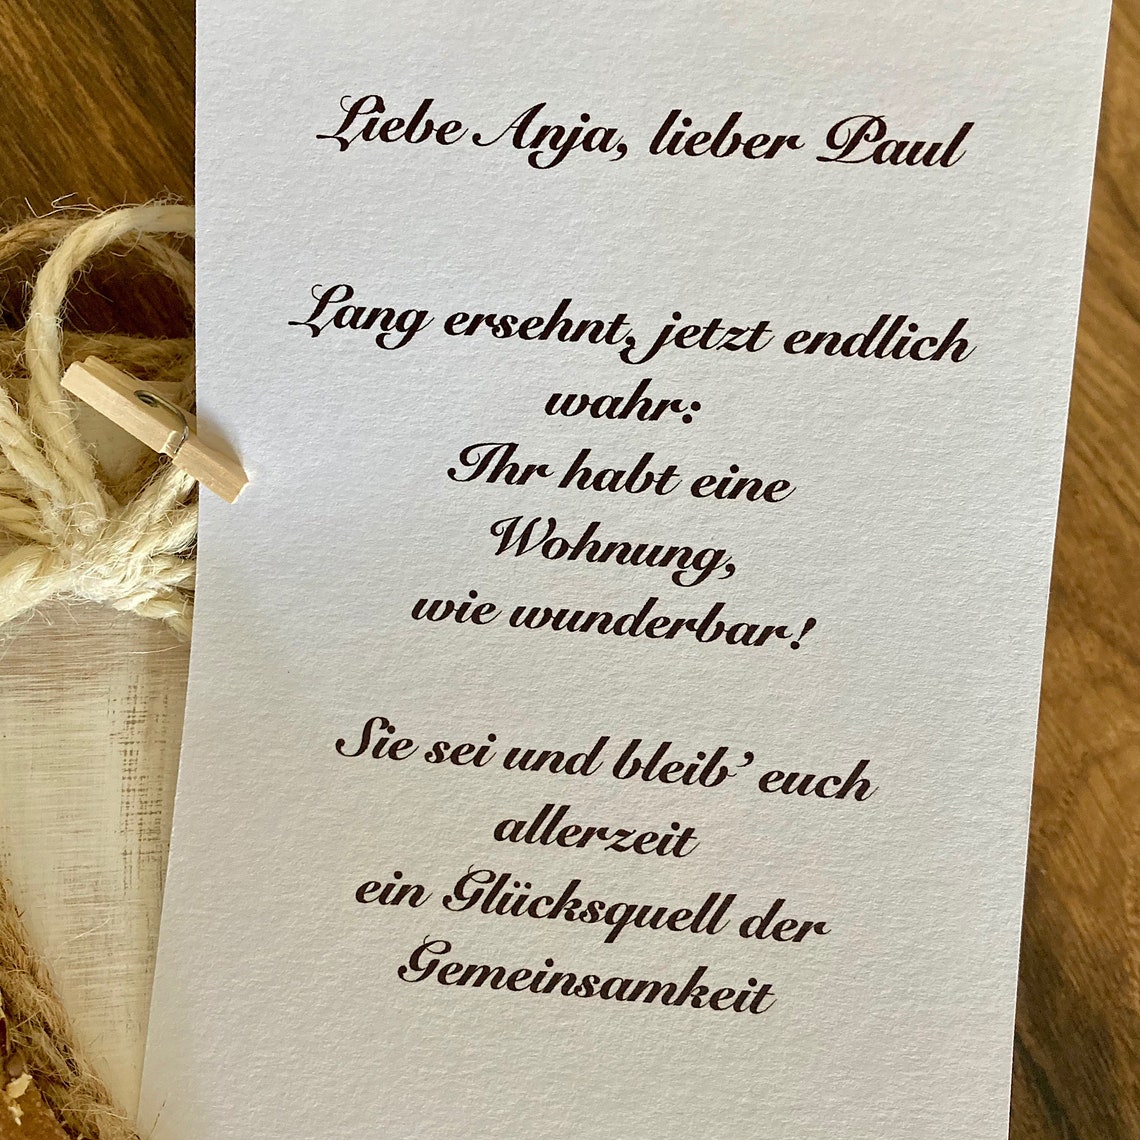 Liebe Anja, lieber Paul
Lang ersehnt, jetzt endlich
wahr:
Ihr habt eine
Wohnung,
wie wunderbar!
Sie sei und bleib’ euch
allerzeit
ein Glücksquell der
Gemeinsamkeit